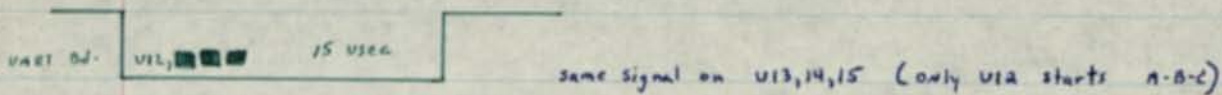 UART Bd. U12, 15 usec
same signal on U13,14,15 (only U12 starts A-B-C)